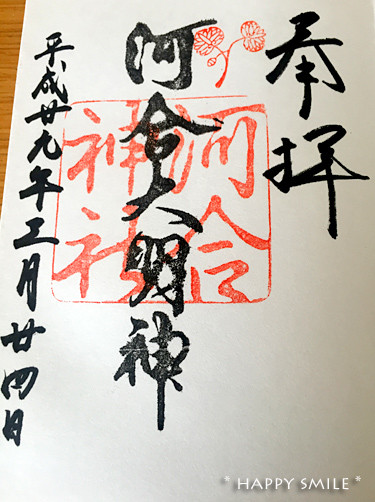 奉拝
河合大明神
河合
神社
平成廿九年三月廿四日
* HAPPY SMILE *